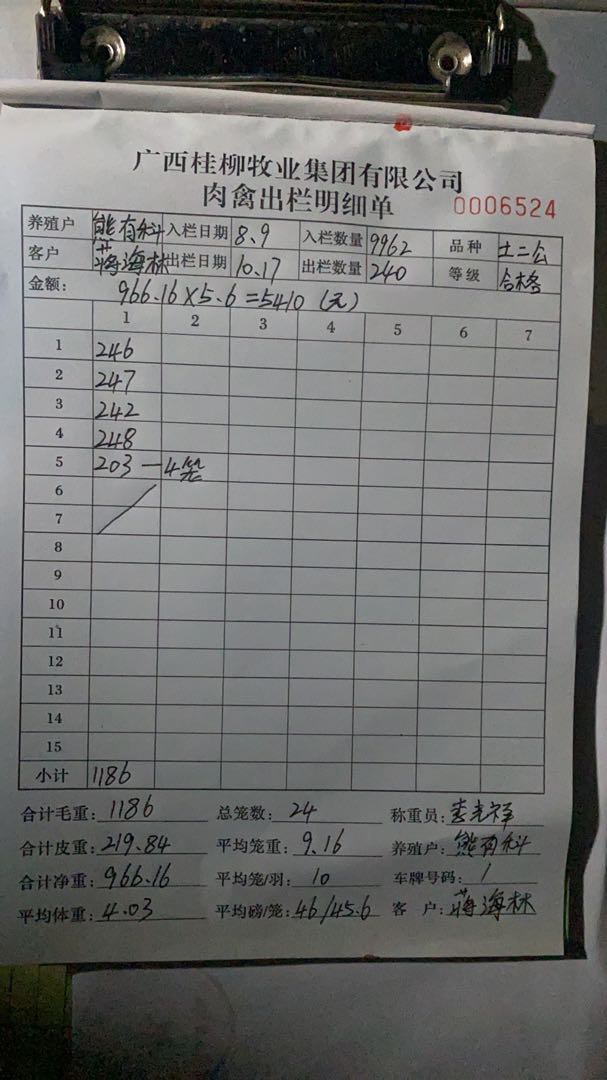 广西桂柳牧业集团有限公司
肉禽出栏明细单 0006524
养殖户 熊有科 入栏日期 8.9 入栏数量 9962 品种 土二公
客户 蒋海林 出栏日期 10.17 出栏数量 240 等级 合格
金额: 966.16×5.6=5410(元)
1 2 3 4 5 6 7
1 246
2 247
3 242
4 248
5 203—4笼
6
7
8
9
10
11
12
13
14
15
小计 1186
合计毛重: 1186 总笼数: 24 称重员:
合计皮重: 219.84 平均笼重: 9.16 养殖户: 熊有科
合计净重: 966.16 平均笼/羽: 10 车牌号码: 1
平均体重: 4.03 平均磅/笼: 46/45.6 客 户: 蒋海林